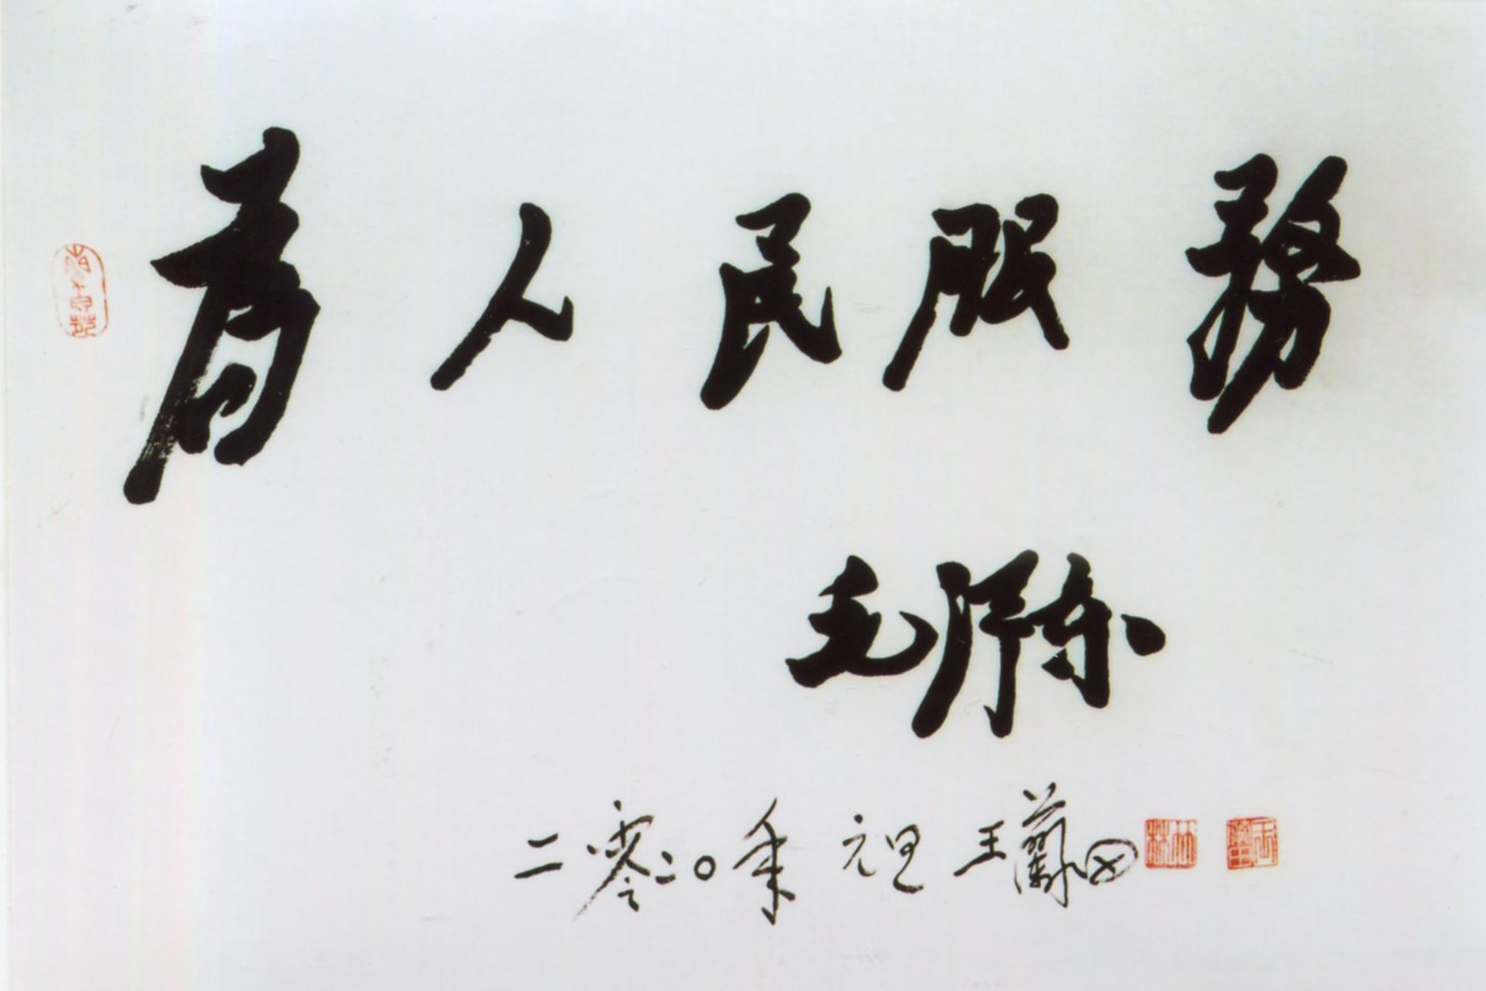 为人民服務
毛泽东
二零二〇年元旦王蘭田